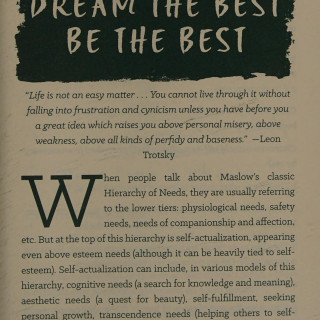 DREAM THE BEST
BE THE BEST
"Life is not an easy matter . . . You cannot live through it without
falling into frustration and cynicism unless you have before you
a great idea which raises you above personal misery, above
weakness, above all kinds of perfidy and baseness." —Leon
Trotsky
When people talk about Maslow's classic
Hierarchy of Needs, they are usually referring
to the lower tiers: physiological needs, safety
needs, needs of companionship and affection,
etc. But at the top of this hierarchy is self-actualization, appearing
even above esteem needs (although it can be heavily tied to self-
esteem). Self-actualization can include, in various models of this
hierarchy, cognitive needs (a search for knowledge and meaning),
aesthetic needs (a quest for beauty), self-fulfillment, seeking
personal growth, transcendence needs (helping others to self-